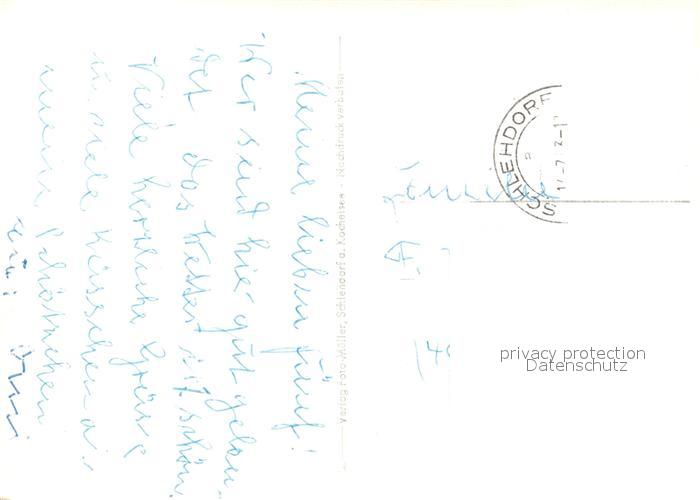 Meine lieben fünf!
Wir sind hier gut gelan-
det das Wetter ist schön.
Viele herzliche Grüsse
u. viele Küsschen a.
meine
Verlag Foto-Müller, Schlehdorf a. Kochelsee - Nachdruck verboten
SCHLEHDORF
Familie
privacy protection
Datenschutz